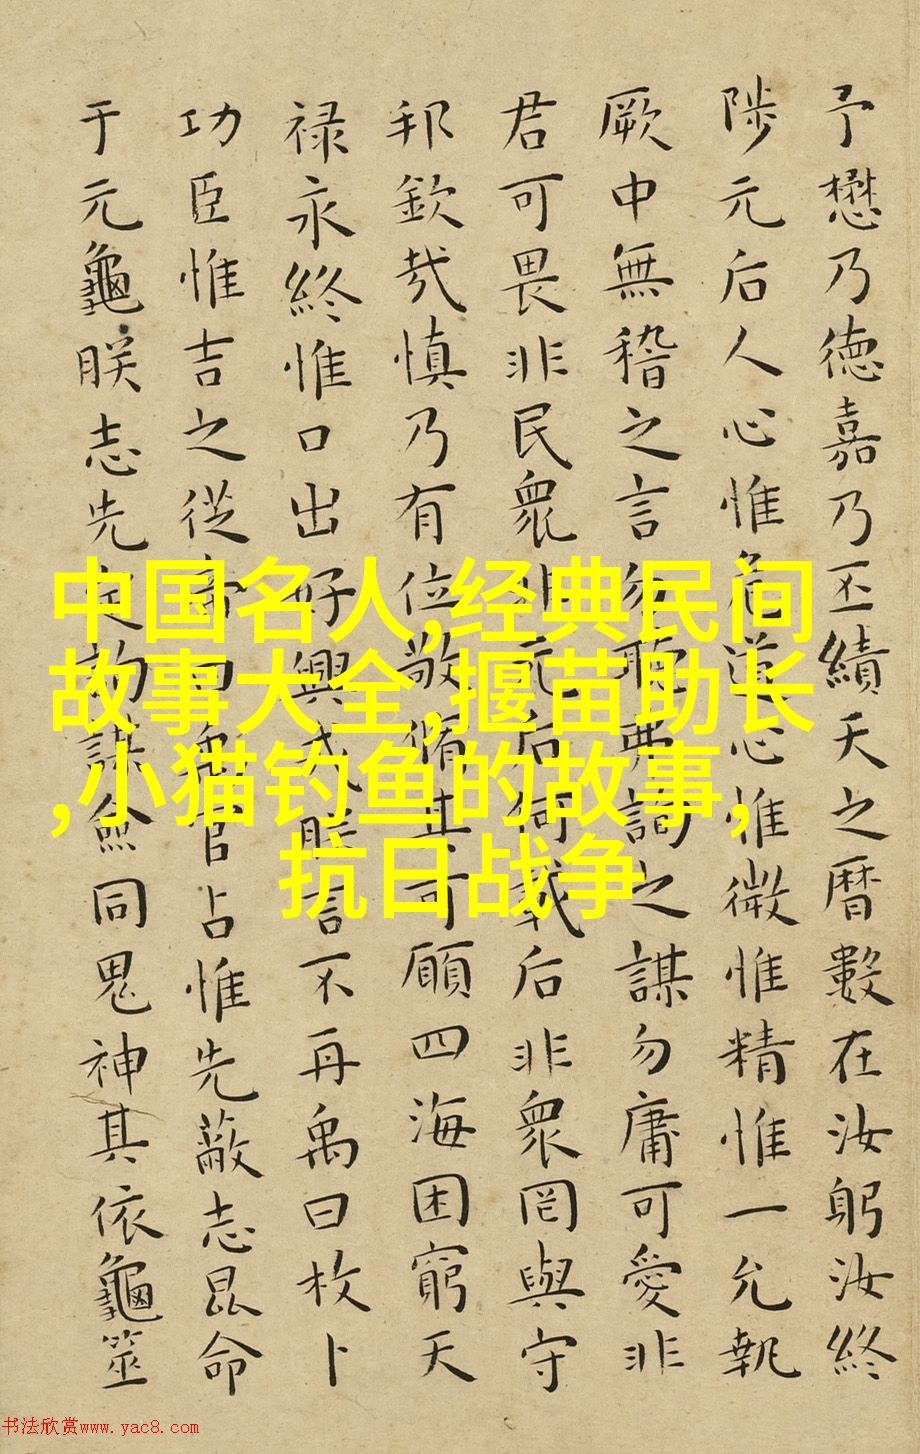 予懋乃德嘉乃丕績天之曆數在汝躬汝終
陟元后人心惟危道心惟微惟精惟一允執
厥中無稽之言勿聽弗詢之謀勿庸可愛非
君可畏非民衆非元后何戴后非衆罔與守
邦欽哉慎乃有位敬脩其可願四海困窮天
禄永終惟口出好興戎朕言不再禹曰枚卜
功臣惟吉之從帝曰禹官占惟先蔽志昆命
于元龜朕志先定詢謀僉同鬼神其依龜筮
中国名人,经典民间
故事大全,揠苗助长
,小猫钓鱼的故事,
抗日战争
书法欣赏www.yac8.com